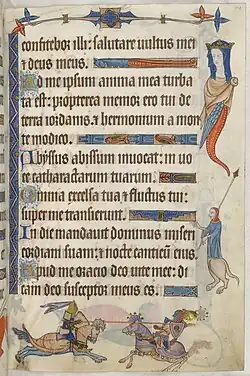 confitebor illi: salutare uultus mei
& deus meus.
Ad me ipsum anima mea turba
ta est: propterea memor ero tui de
terra iordanis. & hermonum a mon
te modico.
Abyssus abissum inuocat: in uo
ce catharactarum tuarum.
Omnia excelsa tua & fluctus tui:
super me transierunt.
In die mandauit dominus miseri
cordiam suam: & nocte canticum eius.
Apud me oracio deo uite mee: di
cam deo susceptor meus es.